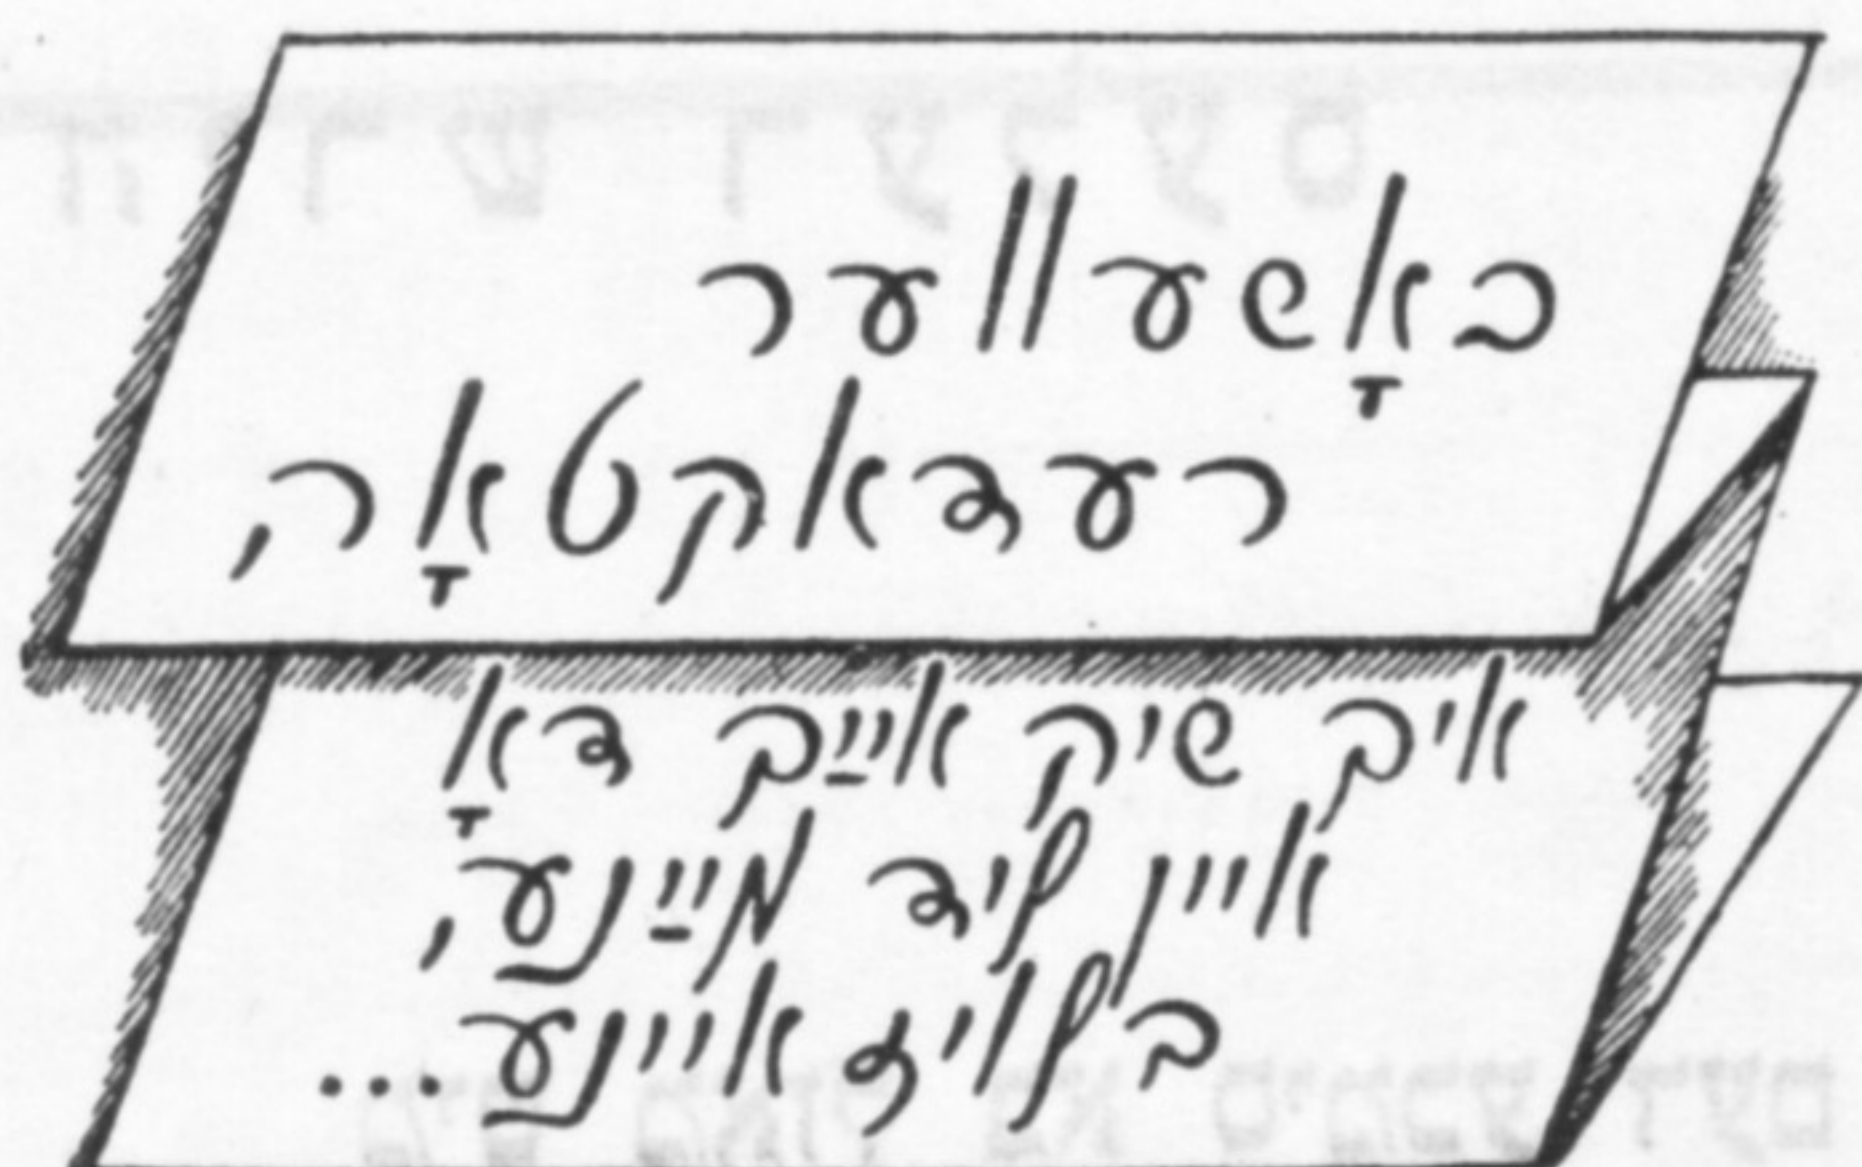 כאָשעווער
רעדאקטאָר,
איך שיק אייַך דאָ
איין ליד מייַנע,
בלויז איינע...